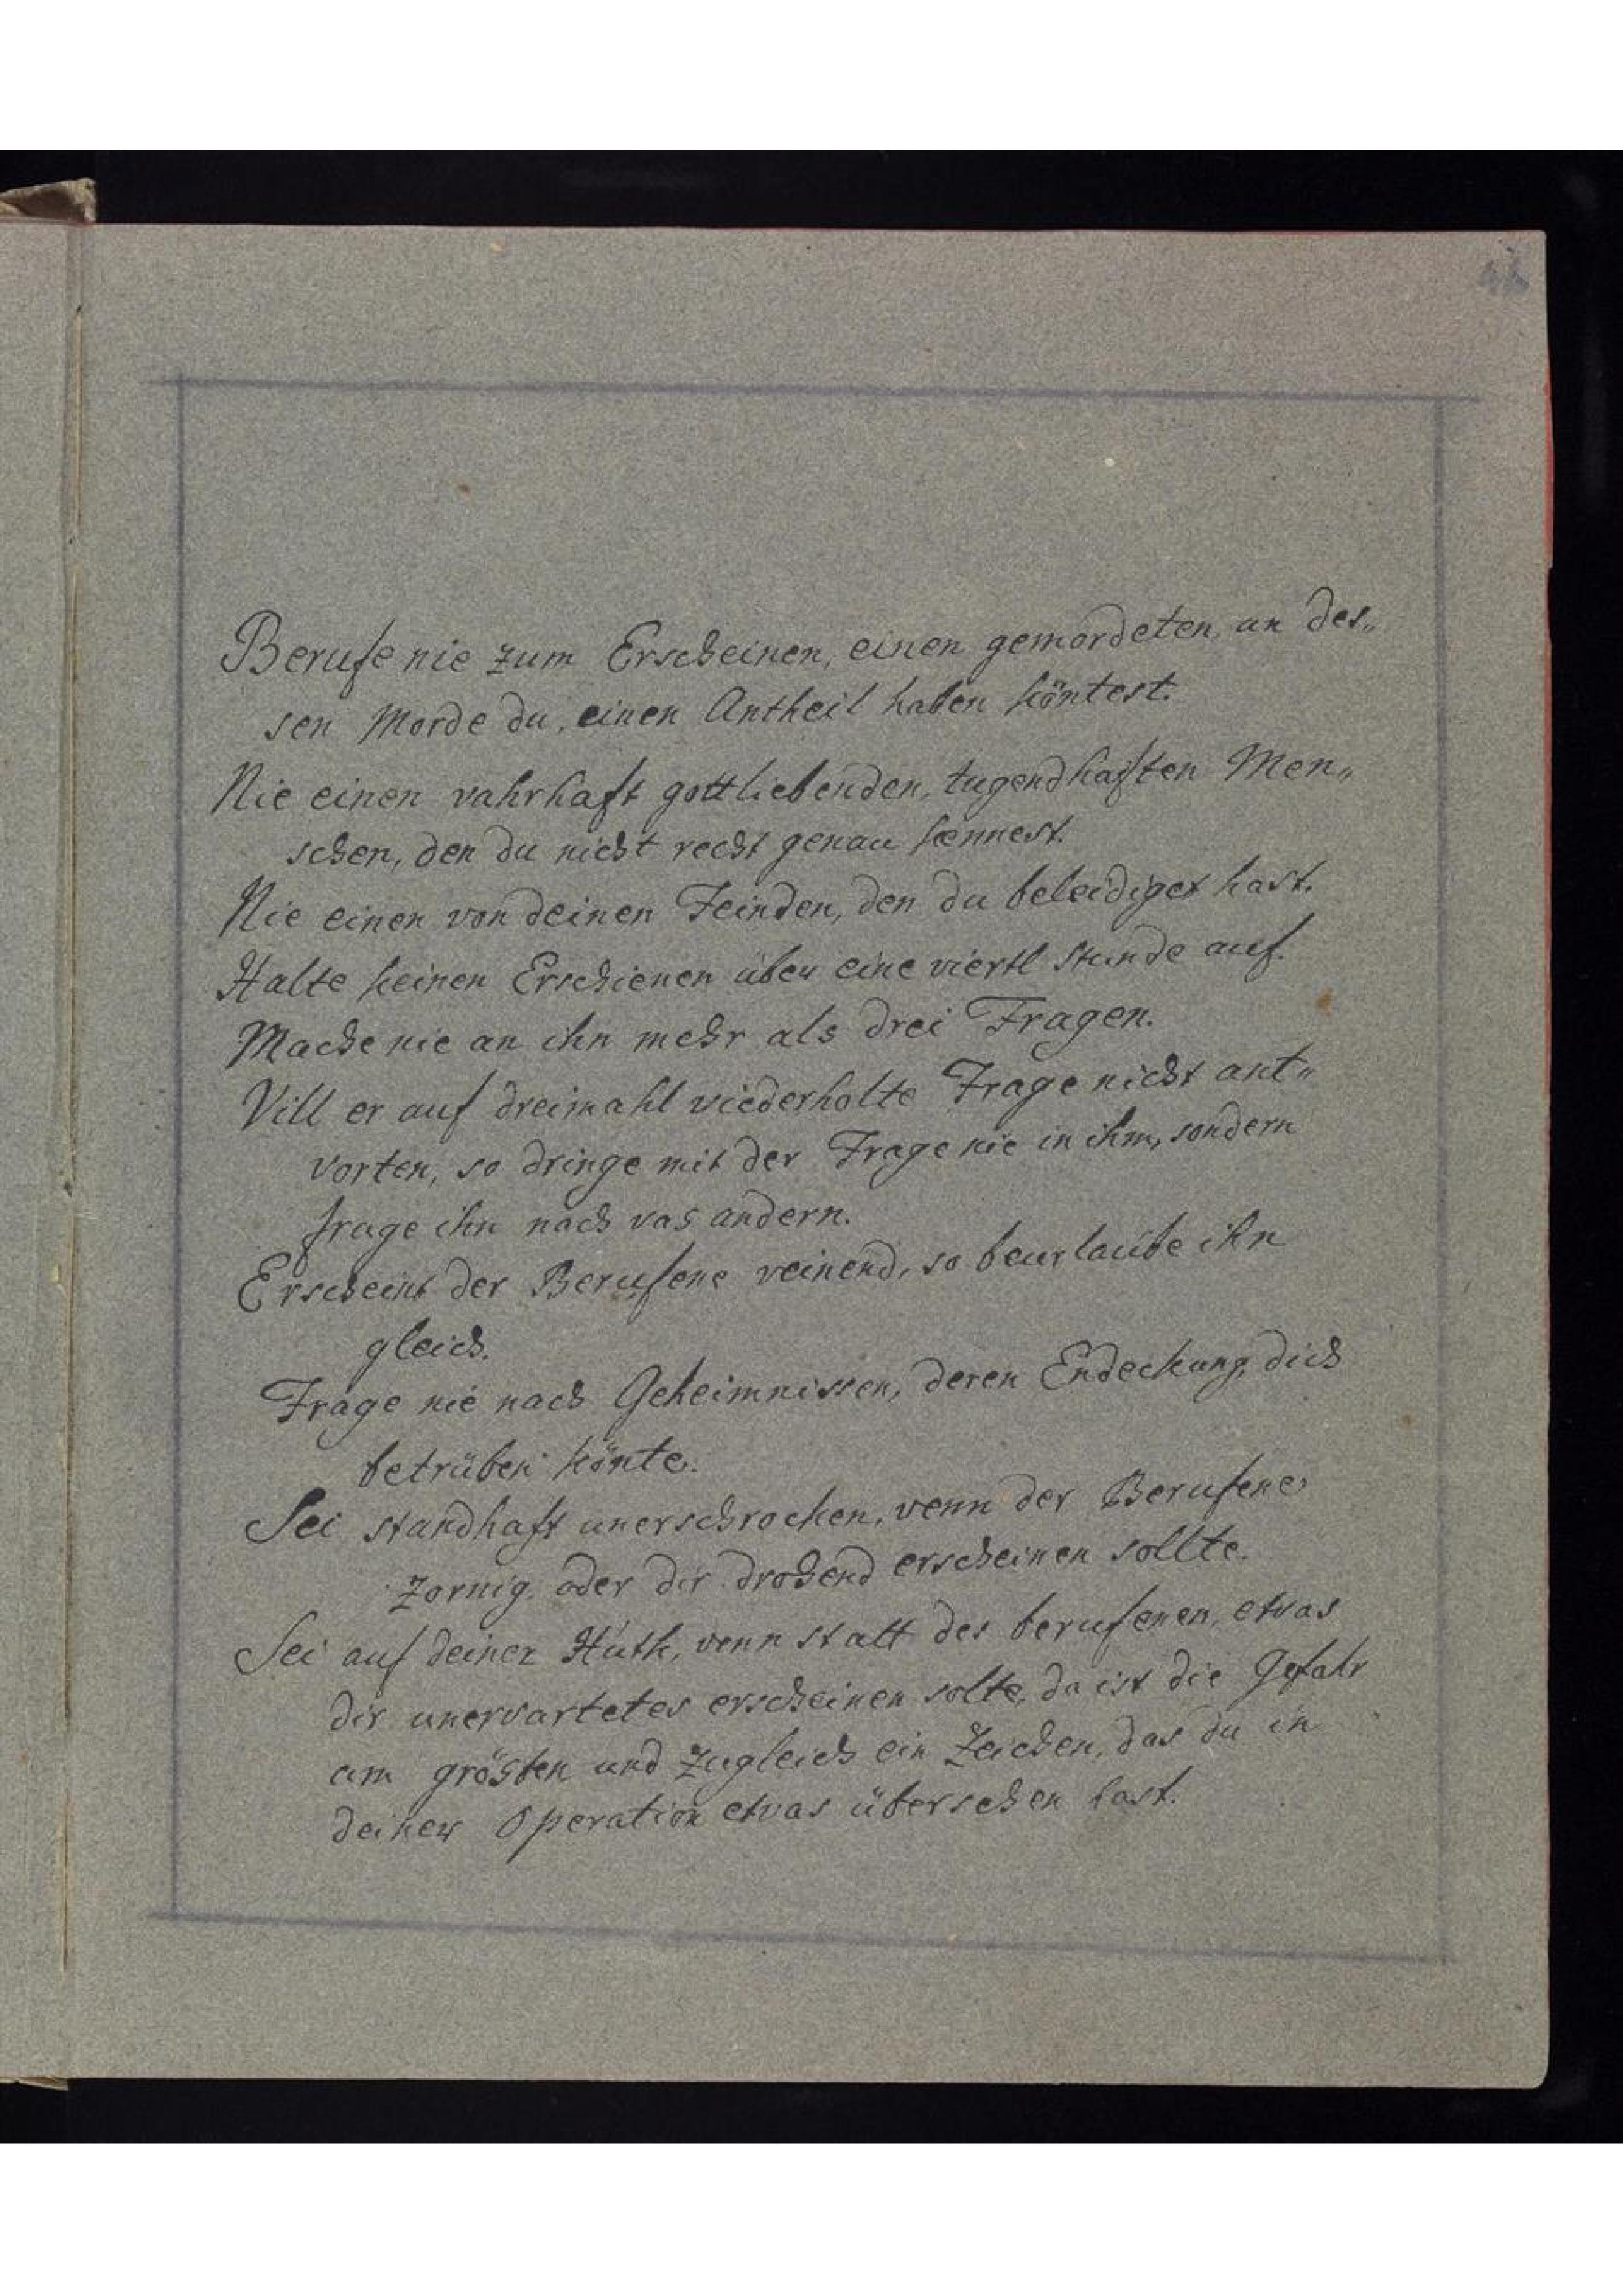 Berufe nie zum Erscheinen, einen gemordeten, an des„
sen Morde du, einen Antheil haben köntest.
Nie einen vahrhaft gottliebenden, tugendhaften Men„
schen, den du nicht recht genau kennest.
Nie einen von deinen Feinden, den du beleidiget hast.
Halte keinen Erschienen über eine viertl stunde auf.
Mache nie an ihn mehr als drei Fragen.
Vill er auf dreimahl viederholte Frage nicht ant„
vorten, so dringe mit der Frage nie in ihm, sondern
frage ihn nach vas andern.
Erscheint der Berufene veinend, so beurlaube ihn
gleich.
Frage nie nach Geheimnissen, deren Endeckung, dich
betrüben könte.
Sei standhaft unerschrocken, venn der Berufene
zornig, oder dir drohend erscheinen sollte.
Sei auf deiner Huth, venn statt des berufenen, etvas
dir unervartetes erscheinen solte, da ist die Gefahr
am grösten und zugleich ein Zeichen, das du in
deiner Operation etvas übersehen hast.